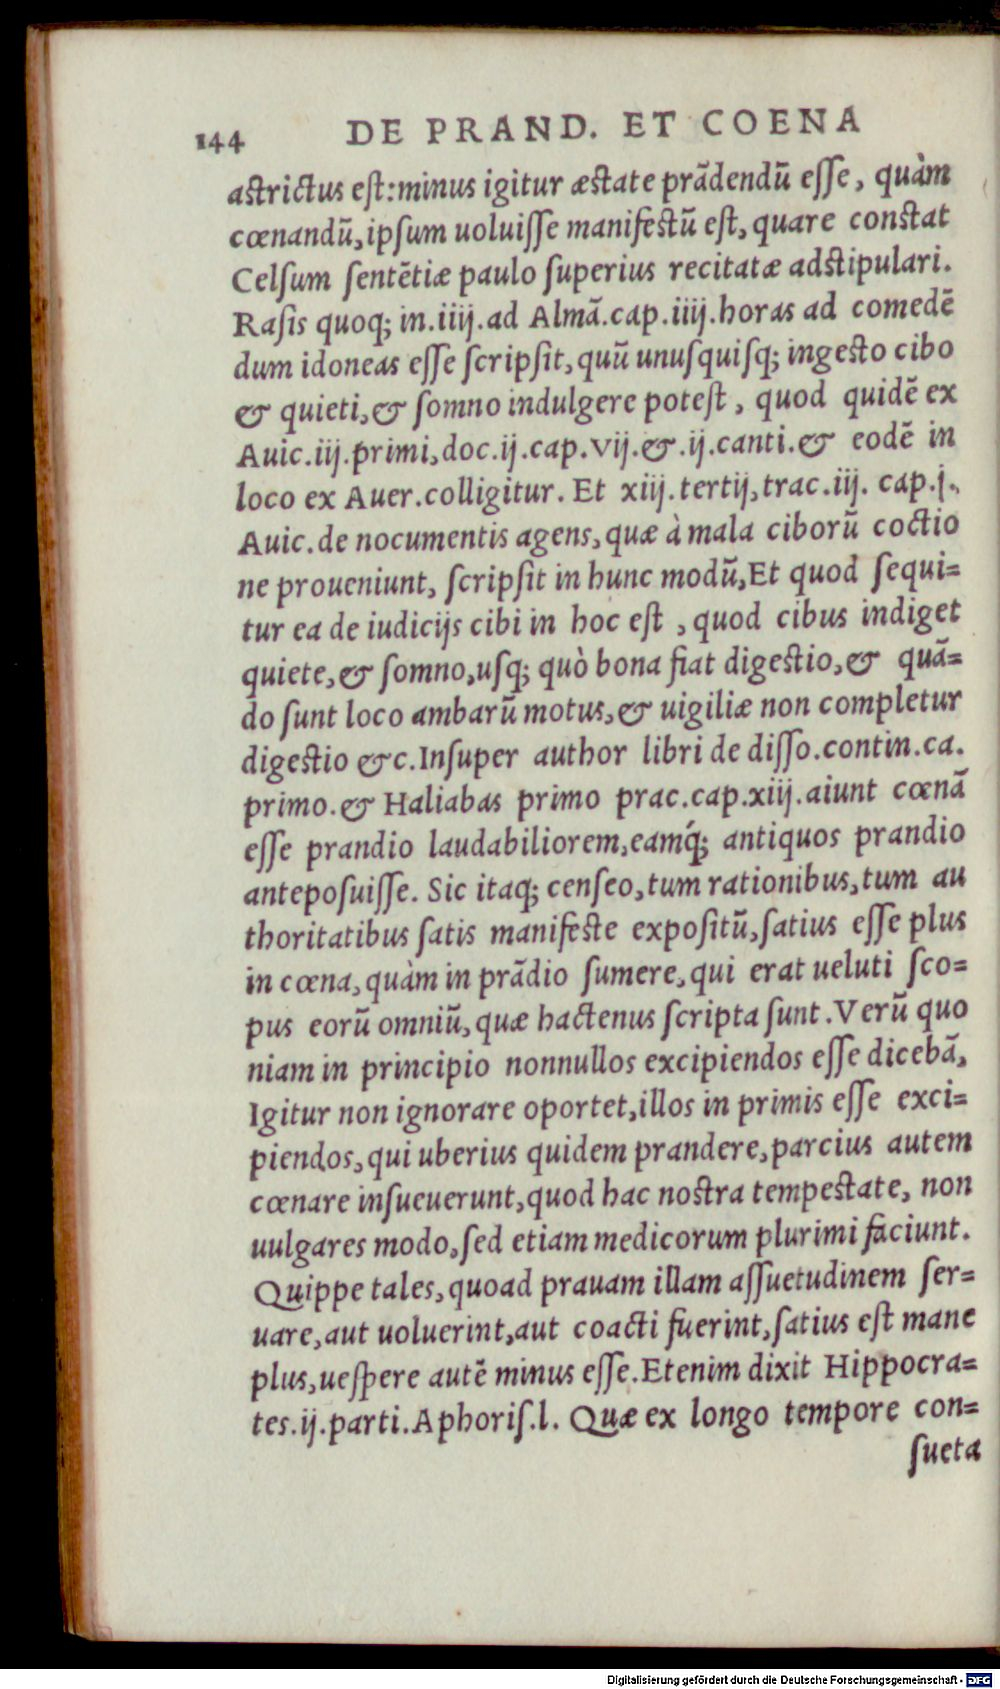 144 DE PRAND. ET COENA
astrictus est:minus igitur æstate prādendū esse, quàm
cœnandū,ipsum uoluisse manifestū est, quare constat
Celsum sentētiæ paulo superius recitatæ adstipulari.
Rasis quoq; in.iiij.ad Almā.cap.iiij.horas ad comedē
dum idoneas esse scripsit,quū unusquisq; ingesto cibo
& quieti,& somno indulgere potest, quod quidē ex
Auic.iij.primi,doc.ij.cap.vij.&.ij.canti.& eodē in
loco ex Auer.colligitur. Et xiij.tertij,trac.iij. cap.j.,
Auic.de nocumentis agens,quæ à mala ciborū coctio
ne proueniunt, scripsit in hunc modū,Et quod sequi=
tur ea de iudicijs cibi in hoc est ,quod cibus indiget
quiete,& somno,usq; quò bona fiat digestio,& quā=
do sunt loco ambarū motus,& uigiliæ non completur
digestio &c.Insuper author libri de disso.contin.ca.
primo.& Haliabas primo prac.cap.xiij.aiunt cœnā
esse prandio laudabiliorem,eamq́; antiquos prandio
anteposuisse. Sic itaq; censeo,tum rationibus,tum au
thoritatibus satis manifeste expositū,satius esse plus
in cœna,quàm in prādio sumere,qui erat ueluti sco=
pus eorū omniū,quæ hactenus scripta sunt.Verū quo
niam in principio nonnullos excipiendos esse dicebā,
Igitur non ignorare oportet,illos in primis esse exci=
piendos,qui uberius quidem prandere,parcius autem
cœnare insueuerunt,quod hac nostra tempestate, non
uulgares modo,sed etiam medicorum plurimi faciunt.
Quippe tales,quoad prauam illam assuetudinem ser=
uare,aut uoluerint,aut coacti fuerint,satius est mane
plus,uespere autē minus esse.Etenim dixit Hippocra=
tes.ij.parti.Aphoris.l. Quæ ex longo tempore con=
sueta
Digitalisierung gefördert durch die Deutsche Forschungsgemeinschaft - DFG